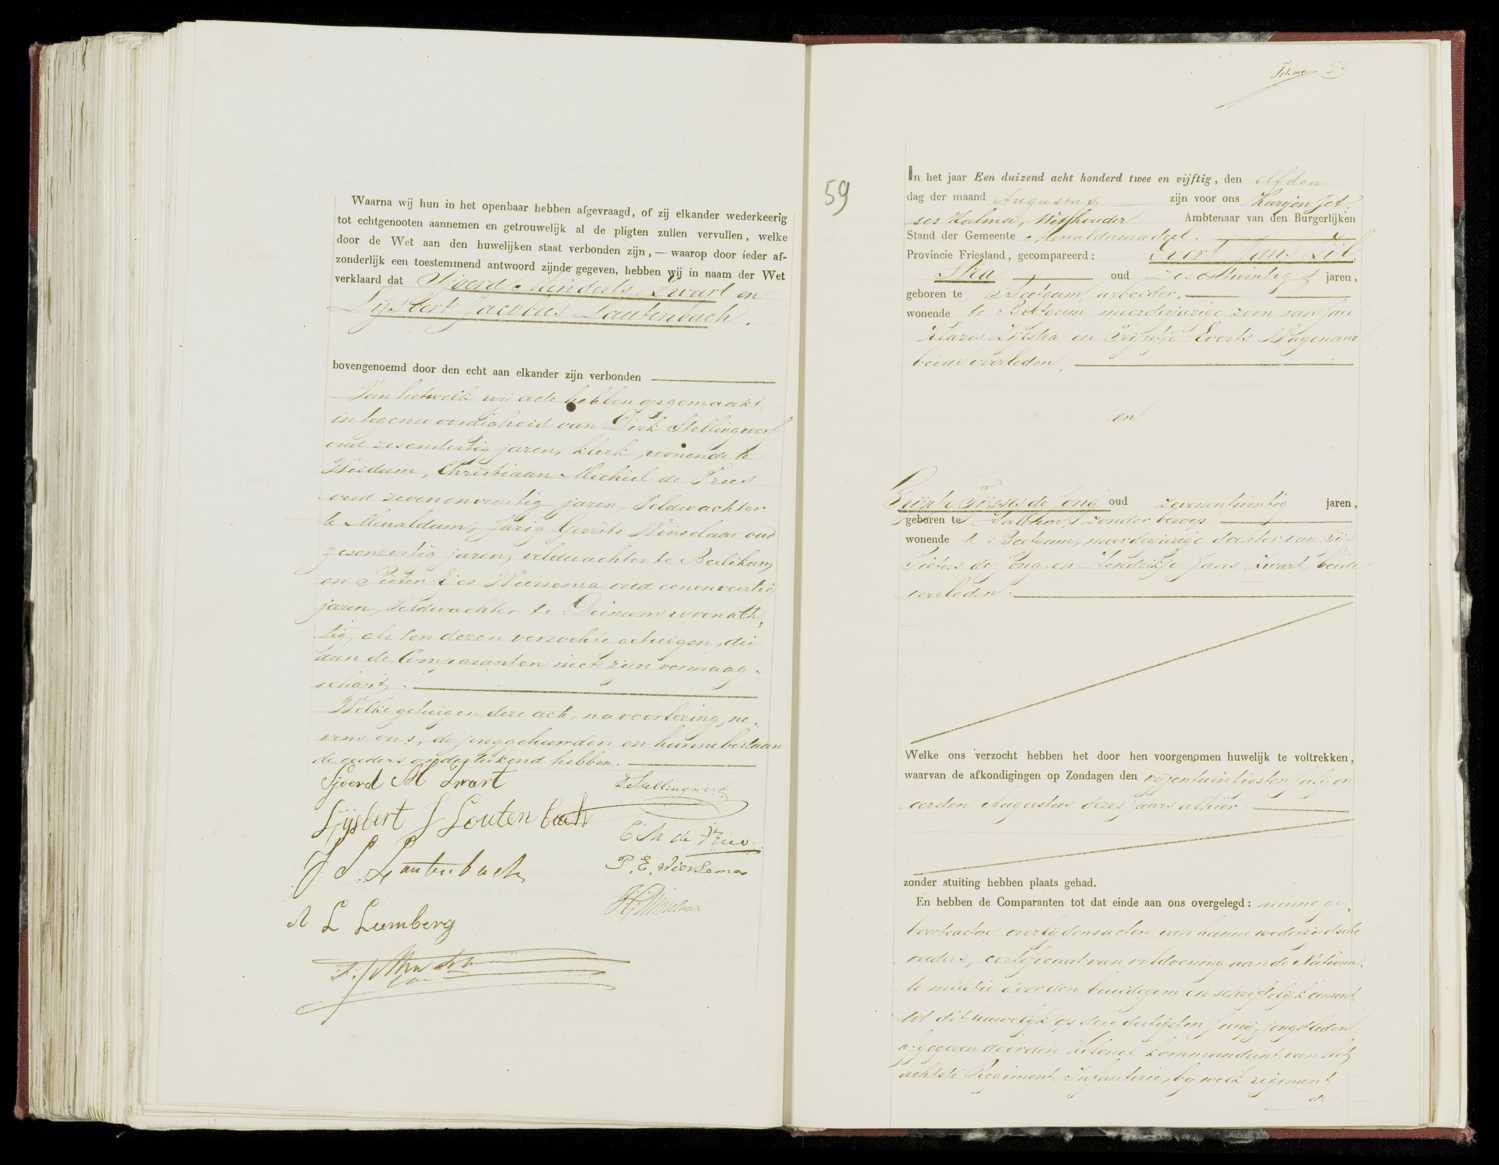 Waarna wij hun in het openbaar hebben afgevraagd, of zij elkander wederkeerig
tot echtgenooten aannemen en getrouwelijk al de pligten zullen vervullen, welke
door de Wet aan den huwelijken staat verbonden zijn, — waarop door ieder af-
zonderlijk een toestemmend antwoord zijnde gegeven, hebben wij in naam der Wet
verklaard dat Sjoerd Meinderts Zwart en
Lijsbert Jacobus Lautenbach.
bovengenoemd door den echt aan elkander zijn verbonden
Van hetwelk wij acte hebben opgemaakt
in tegenwoordigheid van Dirk Stellingwerf
oud zesendertig jaren, klerk, wonende te
Christiaan Michiel de Vries
oud zevenenveertig jaren, veldwachter
te Menaldum, Jarig Gerrits oud
jaren, veldwachter te Berlikum
en Pieter Wiersema oud eenenveertig
jaren, veldwachter te Deinum woonach-
tig, als ten dezen verzochte getuigen, die
aan de Comparanten niet zijn vermaag-
schapt.
Welke getuigen deze acte, na voorlezing, ne-
vens ons, de jonggehuwden en hunne bestaan
de ouders onderteekend hebben.
Sjoerd M Zwart
D Stellingwerf
Lijsbert J Loutenbach
C M de Vries
J S Lautenbach
P. E. Wiersema
A L Lemberg
59
In het jaar Een duizend acht honderd twee en vijftig, den elfden
dag der maand Augustus zijn voor ons Harijen Jet-
ses Zalma, Wethouder Ambtenaar van den Burgerlijken
Stand der Gemeente Menaldumadeel.
Provincie Friesland, gecompareerd: Evert Jans Zijl
stra oud zesentwintig jaren,
geboren te Beetgum, arbeider,
wonende te Beetgum meerderjarige zoon van Jan
Klazes Zijlstra en Trijntje Everts Wagenaar
beide overleden.
en
Geiske Pieters de Jong oud zevenentwintig jaren,
geboren te zonder beroep
wonende te Beetgum, meerderjarige dochter van
Pieters de Jong en Hendrikje Jans Zwart, beide
overleden.
Welke ons verzocht hebben het door hen voorgenomen huwelijk te voltrekken,
waarvan de afkondigingen op Zondagen den vijfentwintigsten Julij en
eersten Augustus dezes jaars alhier
zonder stuiting hebben plaats gehad.
En hebben de Comparanten tot dat einde aan ons overgelegd: hunne ge-
boorteacten, overlijdensacten van hunne wederzijdsche
ouders, certificaat van voldoening aan de Nationa-
le militie door den bruidegom en schriftelijk consent
tot dit huwelijk op den dertigsten Junij jongstleden
afgegeven door den Kolonel kommandant van het
achtste Regiment Infanterie, bij welk regiment
de